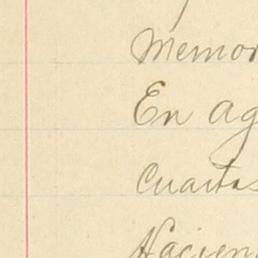 Memor
En ag
cuartas
Hacien